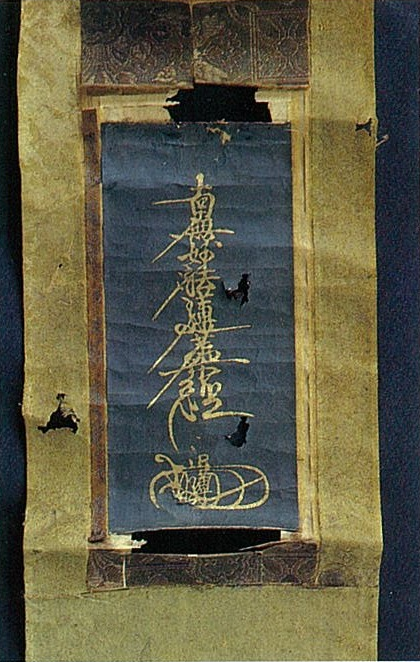 南無妙法蓮華經
日蓮